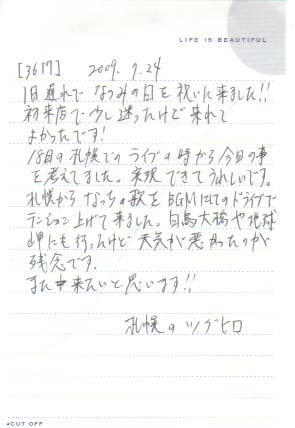 LIFE IS BEAUTIFUL
[3617] 2009. 7. 24
1日遅れで なつみの日を祝いに来ました!!
初来店で少し迷ったけど来れて
よかったです!
18日の札幌でのライブの時から今日の事
を考えてました。実現できてうれしいです。
札幌から なっちの歌をBGMにしてのドライブで
テンション上げて来ました。白鳥大橋や地球
岬にも行ったけど 天気が悪かったのが
残念です。
また来たいと思います!!
札幌のツグヒロ
CUT OFF